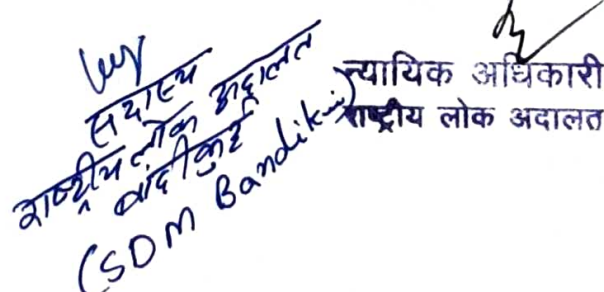 सदास्य
राष्ट्रीय लोक अदालत
बांदीकुई
(SDM Bandikui)
न्यायिक अधिकारी
राष्ट्रीय लोक अदालत